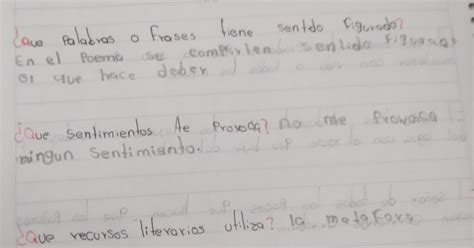 ¿Que Palabras o Frases tiene sentido figurado?
En el Poema se comparten sentido Figurado
el que hace deber
¿Que Sentimientos te Provoca? no me Provoca
ningun Sentimiento.
¿Que recursos literarios utiliza? la metafora